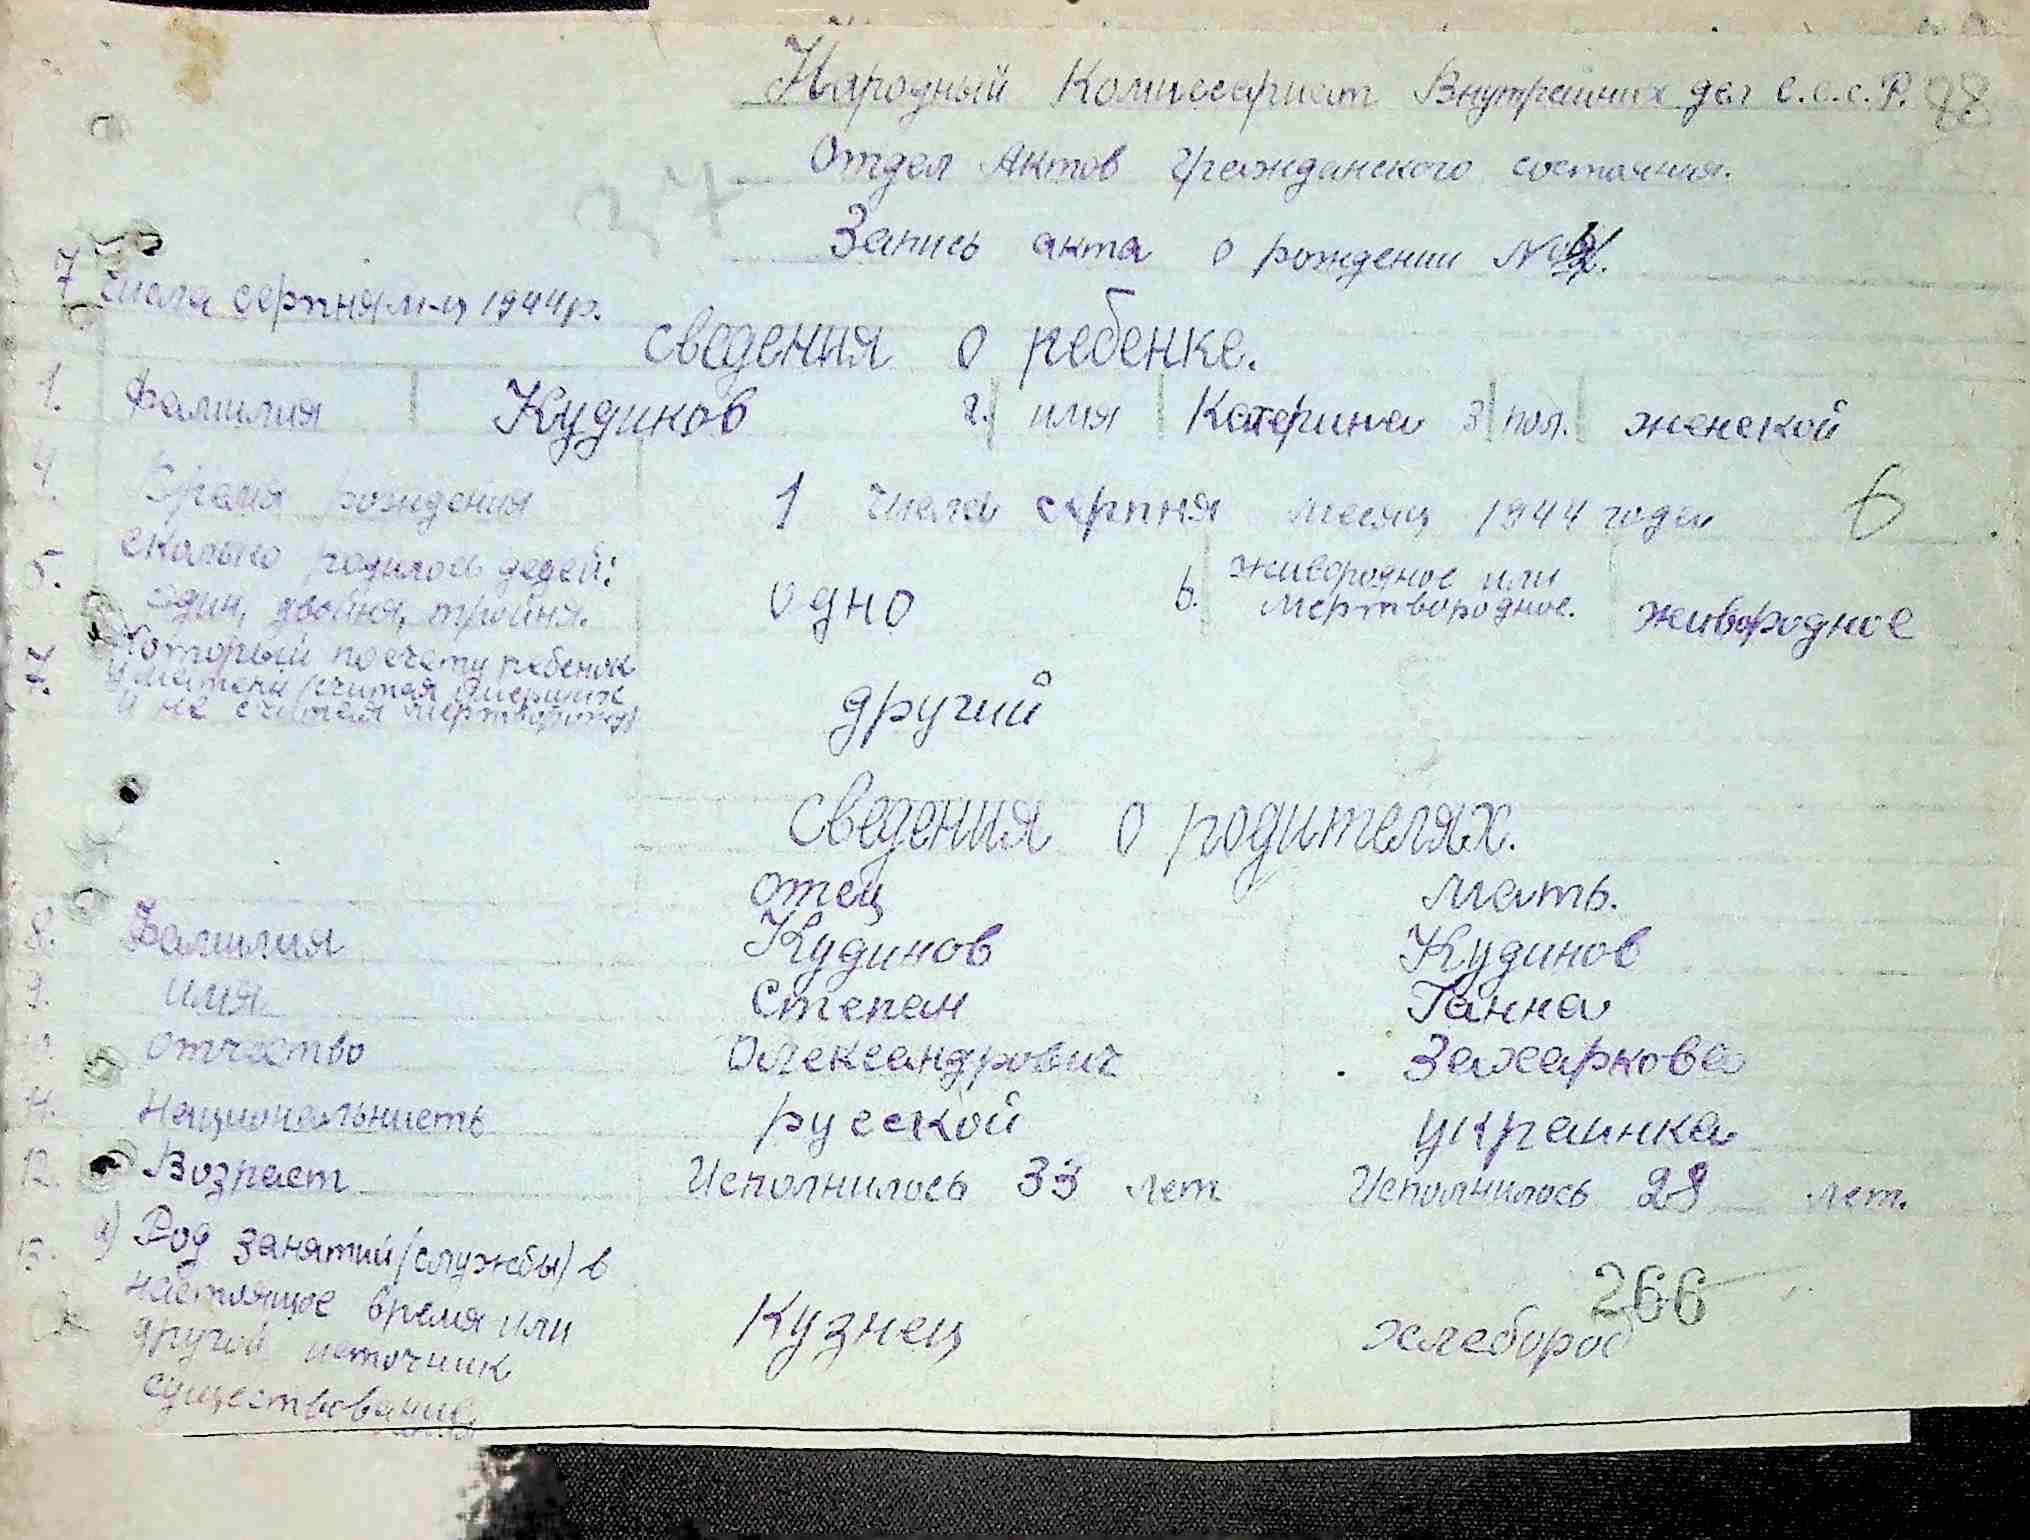 Народный Комиссариат Внутренних дел С.С.С.Р. 98
Отдел Актов Гражданского состояния.
37
Запись акта о рождении №
7 числа серпня м-ц 1944 р.
сведения о ребенке.
1. Фамилия Кудинов 2. имя Катерина 3 пол. женской
4. Время рождения 1 числа серпня месяц 1944 года 6
5. сколько родилось детей: один, двойня, тройня. одно 6. живородное или мертвородное. живородное
7. Который по счету ребенок
у матери (считая умерших
и не считая
другий
сведения о родителях.
отец мать.
8. Фамилия Кудинов Кудинов
9. имя Степан Ганна
отчество Олександрович Захарковна
11. Национальнисть русской украинка
12. Возраст Исполнилось 33 лет Исполнилось 28 лет.
13. а) Род занятий (службы) в
настоящое время или
другой источник
существования
Кузнец хлебороб
266